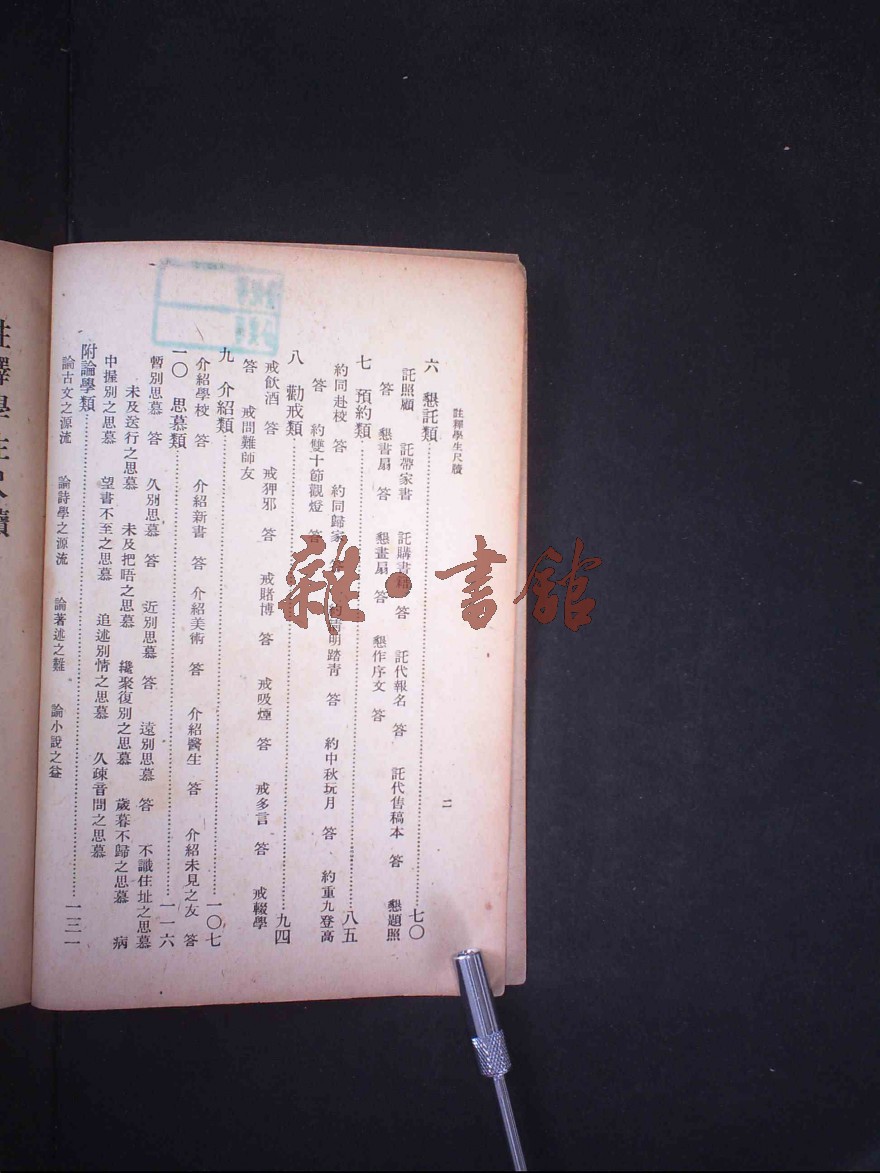 註釋學生尺牘
二
六 懇託類……七〇
託照顧 託帶家書 託購書籍 答 託代報名 答 託代售稿本 答 懇題照
答 懇書扇 答 懇畫扇 答 懇作序文 答
七 預約類……八五
約同赴校 答 約同歸家 答 約清明踏青 答 約中秋玩月 答 約重九登高
答 約雙十節觀燈 答
八 勸戒類……九四
戒飲酒 答 戒狎邪 答 戒賭博 答 戒吸煙 答 戒多言 答 戒輟學
答 戒問難師友
九 介紹類……一〇七
介紹學校 答 介紹新書 答 介紹美術 答 介紹醫生 答 介紹未見之友 答
一〇 思慕類……一一六
暫別思慕 答 久別思慕 答 近別思慕 答 遠別思慕 答 不識住址之思慕
未及送行之思慕 未及把晤之思慕 纔聚復別之思慕 歲暮不歸之思慕 病
中握別之思慕 望書不至之思慕 追述別情之思慕 久疎音問之思慕
附論學類……一三一
論古文之源流 論詩學之源流 論著述之難 論小說之益
註釋學生尺牘
雜·書館